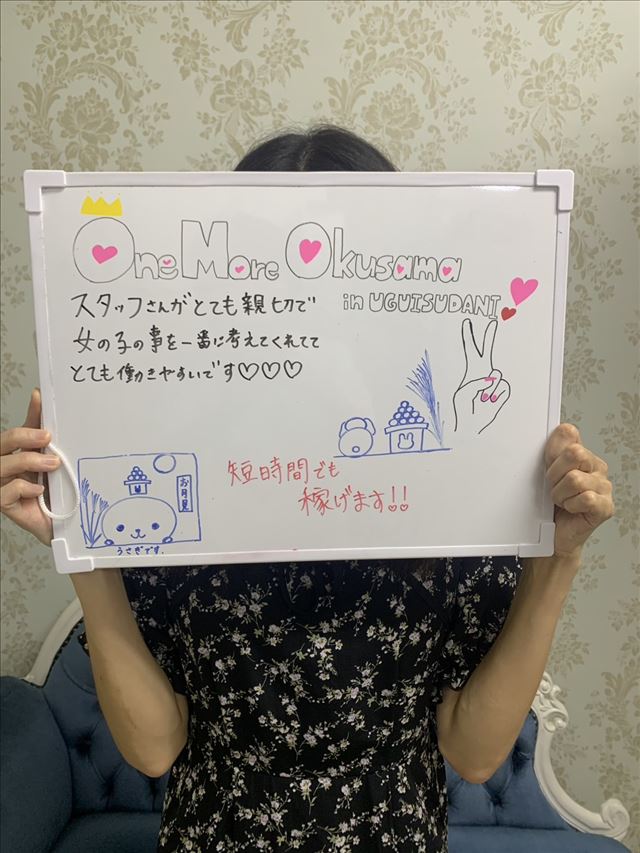 One More Okusama
in UGUISUDANI
スタッフさんがとても親切で
女の子の事を一番に考えてくれてて
とても働きやすいです♡♡♡
短時間でも
稼げます!!
お月見
うさぎです。